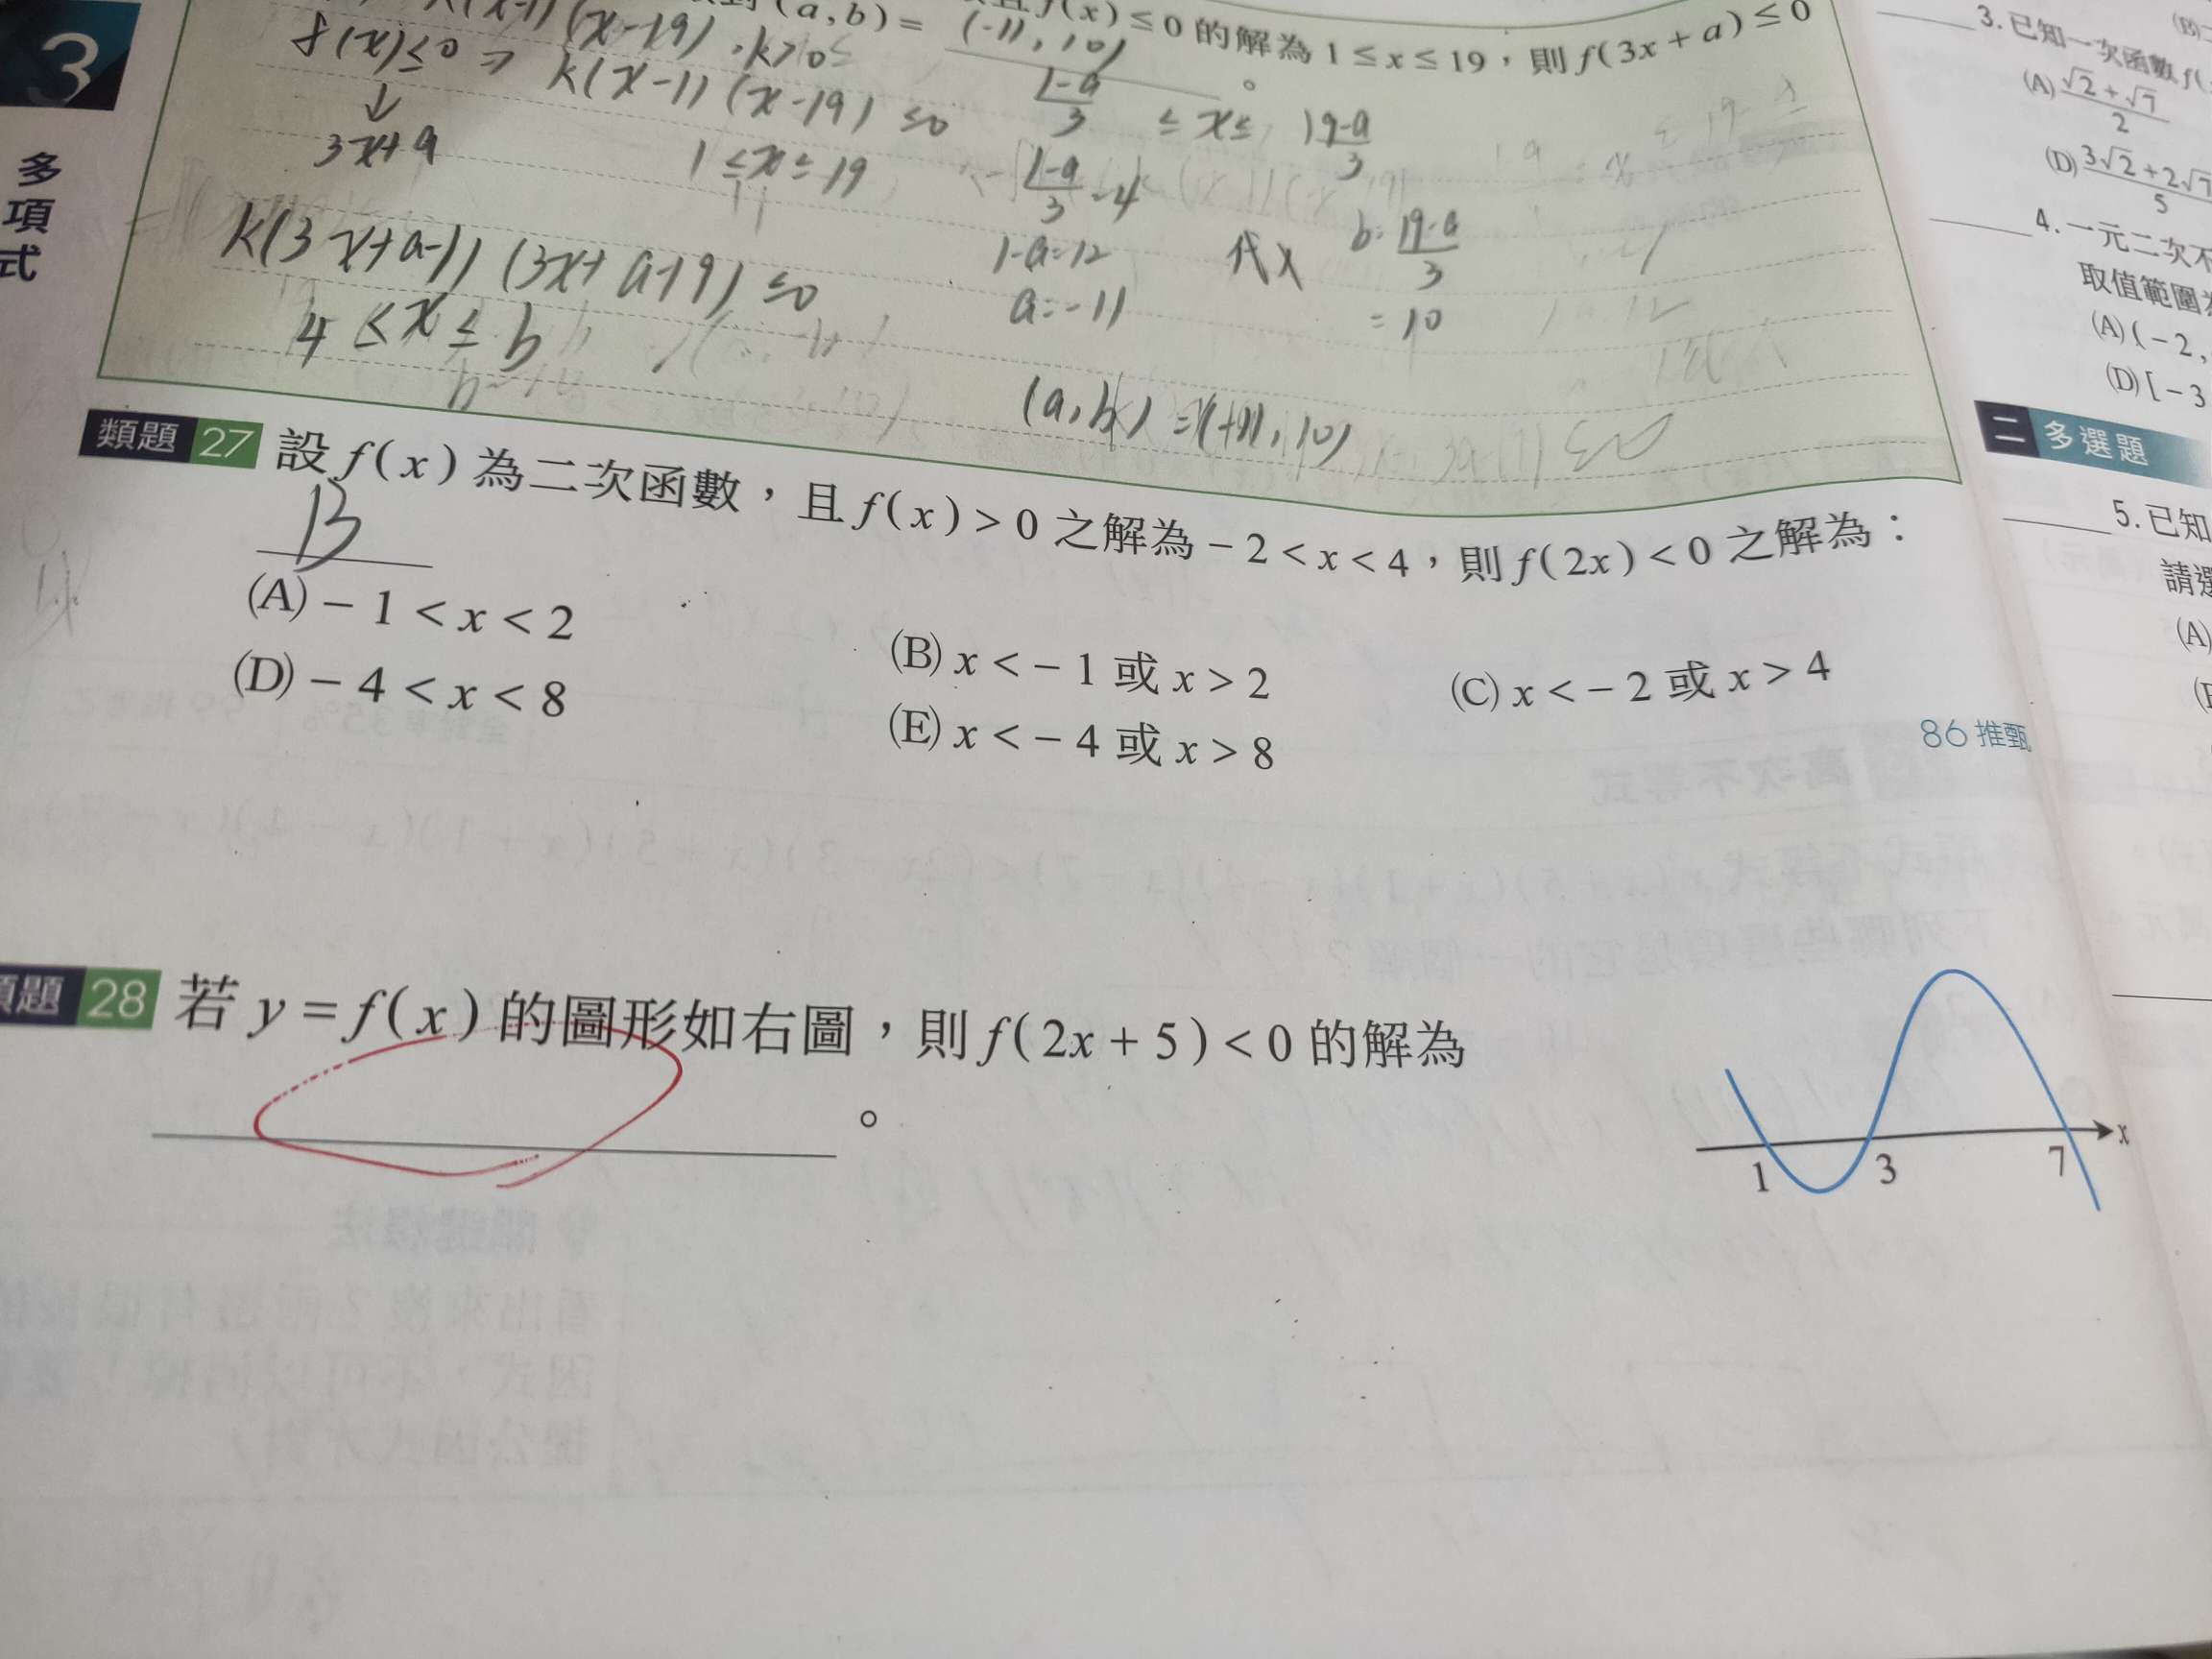 3
多項式
(a,b)= (-11,10) 。
f(x)≤0 的解為 1≤x≤19，則 f(3x+a)≤0
(x-19), k>0
f(x)≤0 ⇒ k(x-1)(x-19)≤0
↓
3x+a
1≤x≤19
(1-a)/3 ≤x≤ (19-a)/3
(1-a)/3 = 4
k(3x+a-1)(3x+a-19)≤0
1-a=12
代入 b=(19-a)/3
4≤x≤b
a=-11
=10
(a,b)=(-11,10)
類題 27 設 f(x) 為二次函數，且 f(x)>0 之解為 -2<x<4，則 f(2x)<0 之解為：
B
(A) -1<x<2
(B) x<-1 或 x>2
(C) x<-2 或 x>4
(D) -4<x<8
(E) x<-4 或 x>8
86 推甄
題 28 若 y=f(x) 的圖形如右圖，則 f(2x+5)<0 的解為
。
1 3 7 x
3. 已知一次函數 f(
(A) (√2+√7)/2
(D) (3√2+2√7)/5
4. 一元二次不
取值範圍
(A) (-2,
(D) [-3
二 多選題
5. 已知
請選
(A)